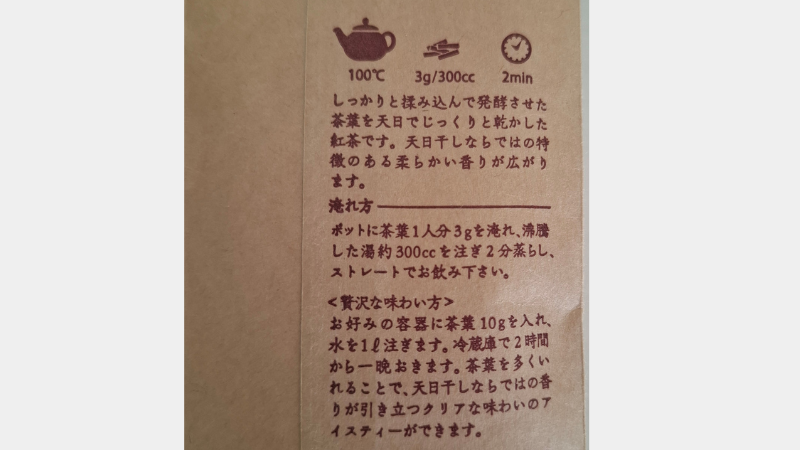 100℃ 3g/300cc 2min
しっかりと揉み込んで発酵させた
茶葉を天日でじっくりと乾かした
紅茶です。天日干しならではの特
徴のある柔らかい香りが広がり
ます。
淹れ方
ポットに茶葉1人分3gを淹れ、沸騰
した湯約300ccを注ぎ2分蒸らし、
ストレートでお飲み下さい。
<贅沢な味わい方>
お好みの容器に茶葉10gを入れ、
水を1ℓ注ぎます。冷蔵庫で2時間
から一晩おきます。茶葉を多くい
れることで、天日干しならではの香
りが引き立つクリアな味わいのア
イスティーができます。